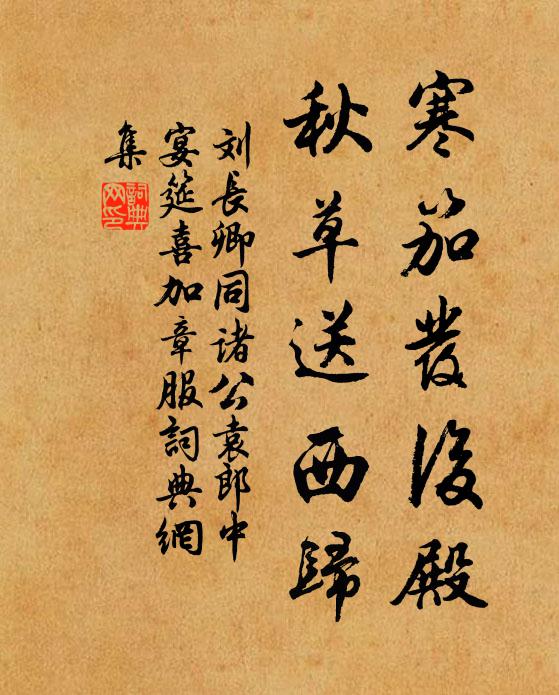 寒笳發後殿
秋草送西歸
刘長卿同諸公袁郎中
宴筵喜加章服詞典網
集
詞典網印